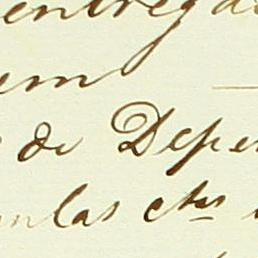 entrega
em
de Depe
las cts